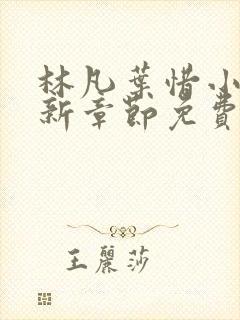 林凡葉惜小
新章節免費
王麗莎